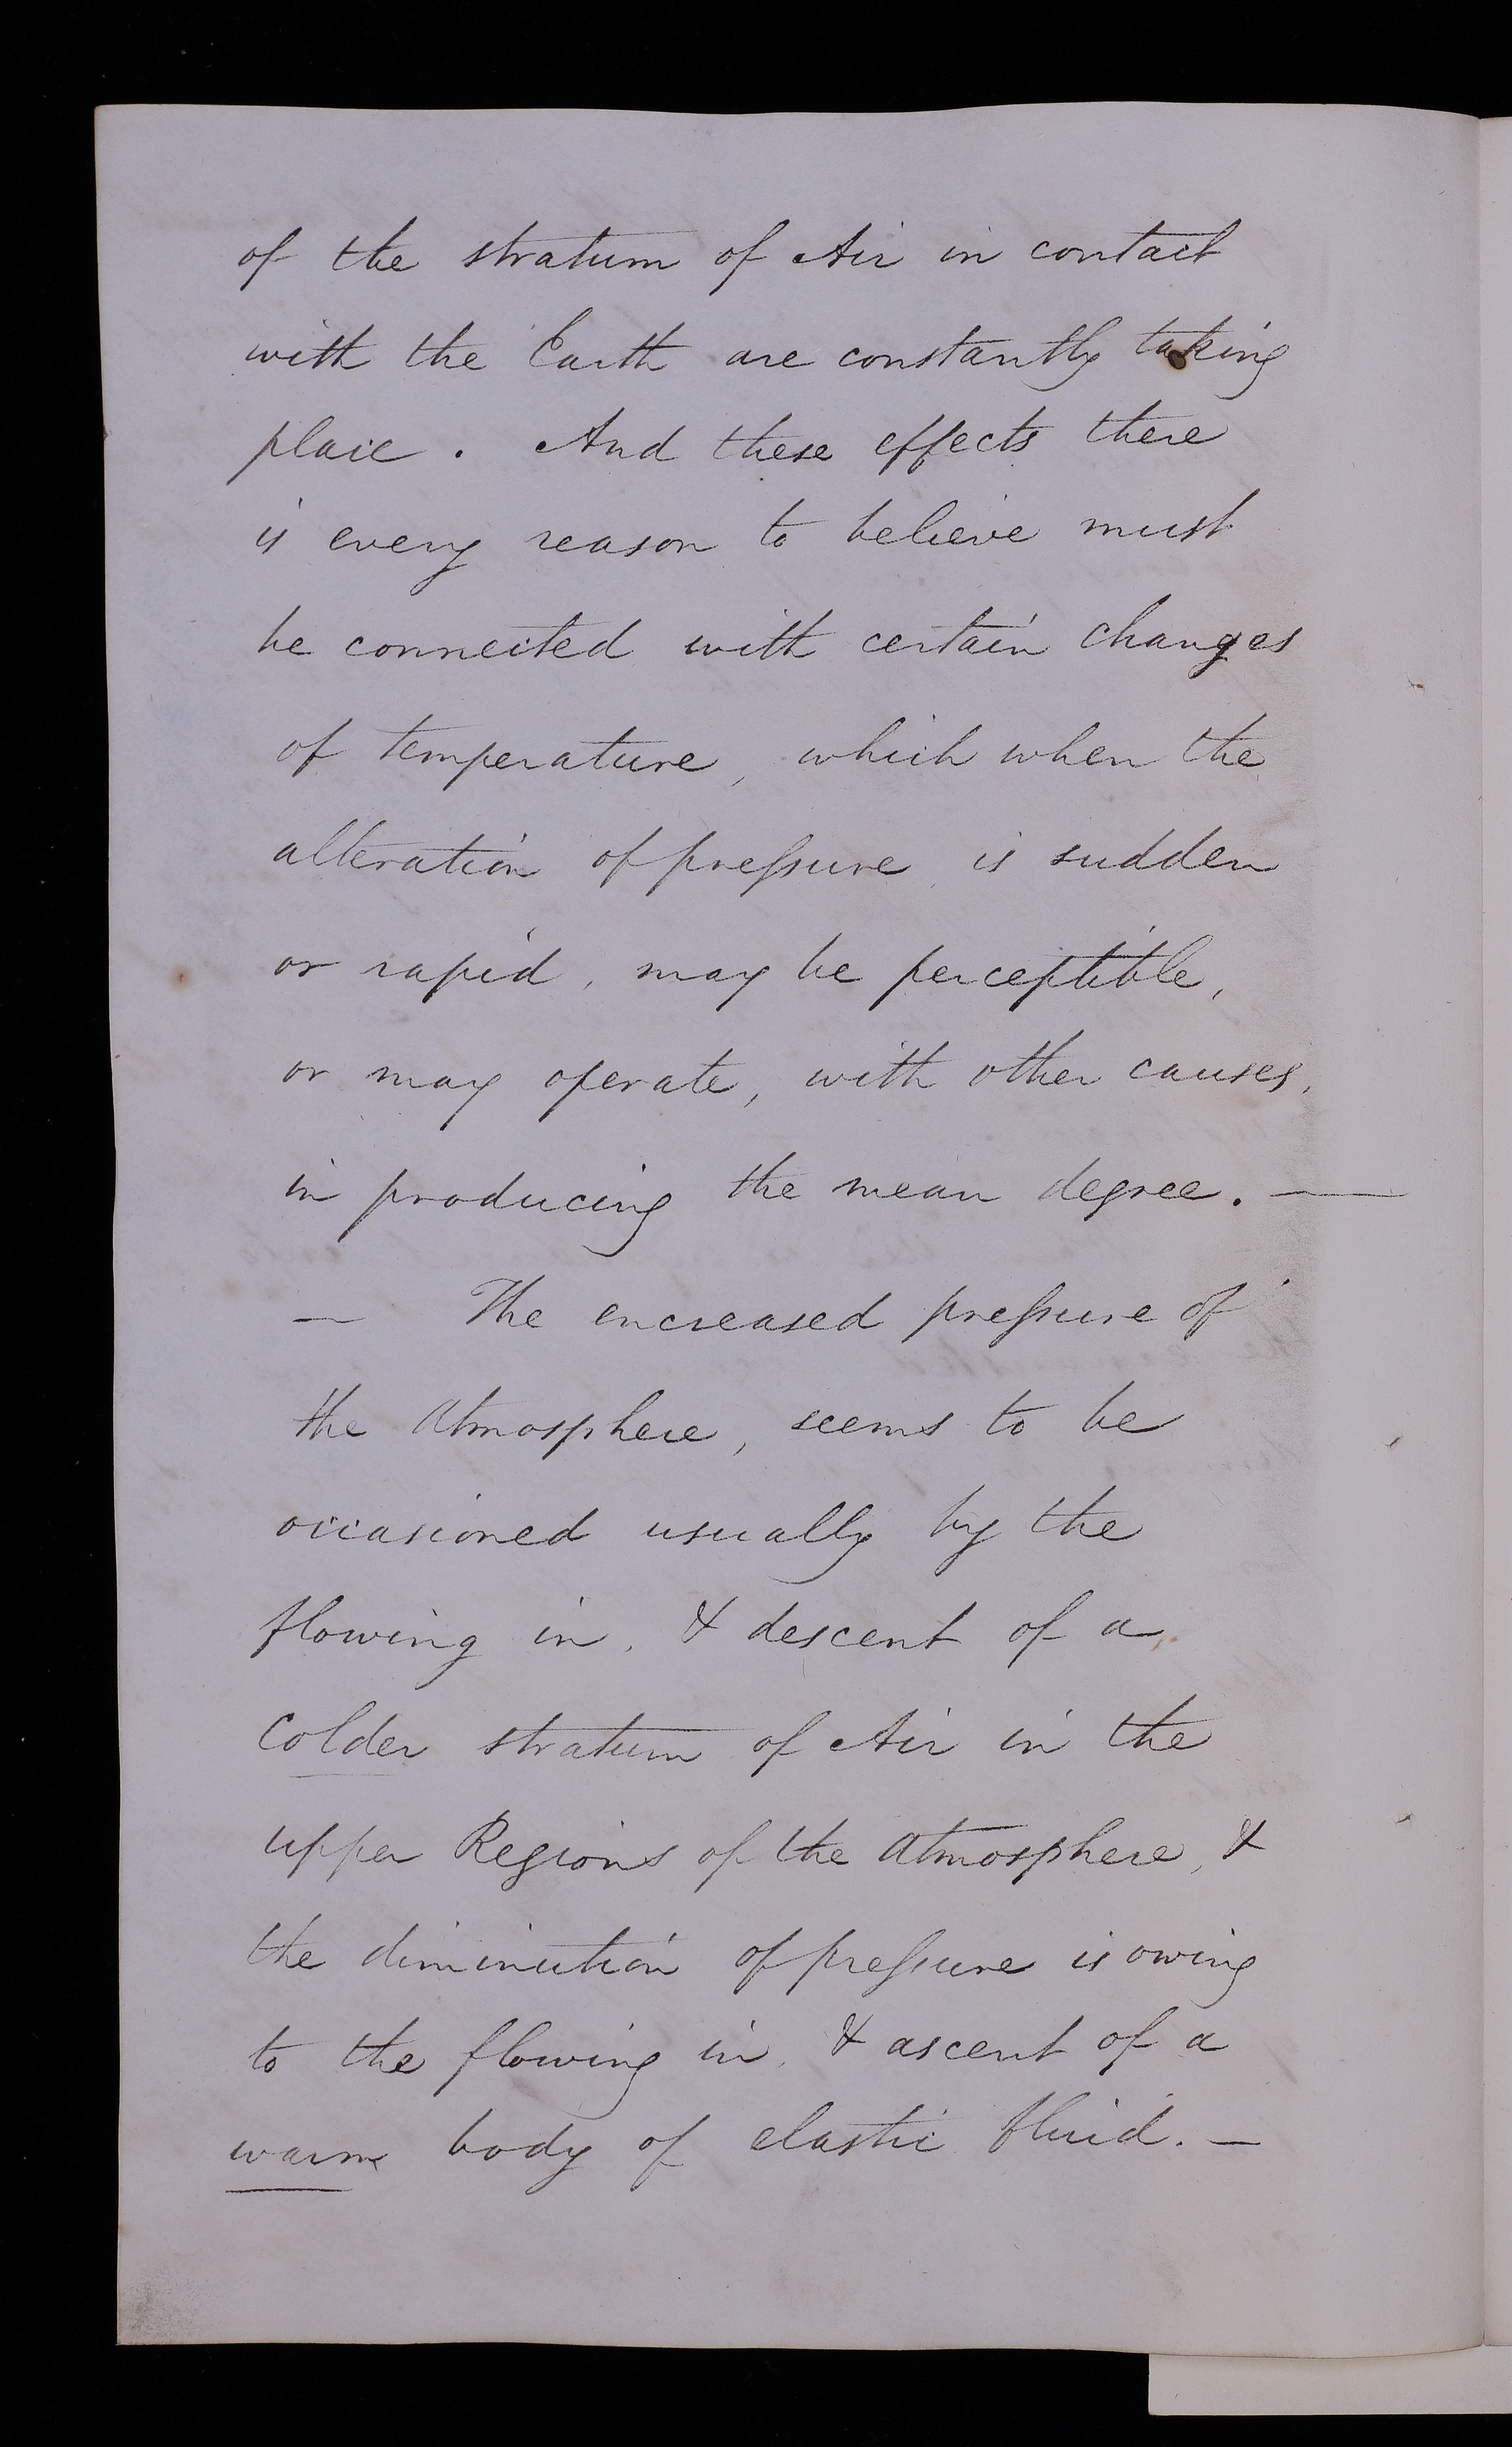 of the stratum of Air in contact
with the Earth are constantly taking
place. And these effects there
is every reason to believe must
be connected with certain changes
of temperature, which when the
alteration of preſsure is sudden
or rapid, may be perceptible,
or may operate, with other causes,
in producing the mean degree. —
— The encreased preſsure of
the Atmosphere, seems to be
occasioned usually by the
flowing in, & descent of a
Colder stratum of Air in the
upper Regions of the Atmosphere, &
the diminution of preſsure is owing
to the flowing in, & ascent of a
warm body of elastic fluid. —